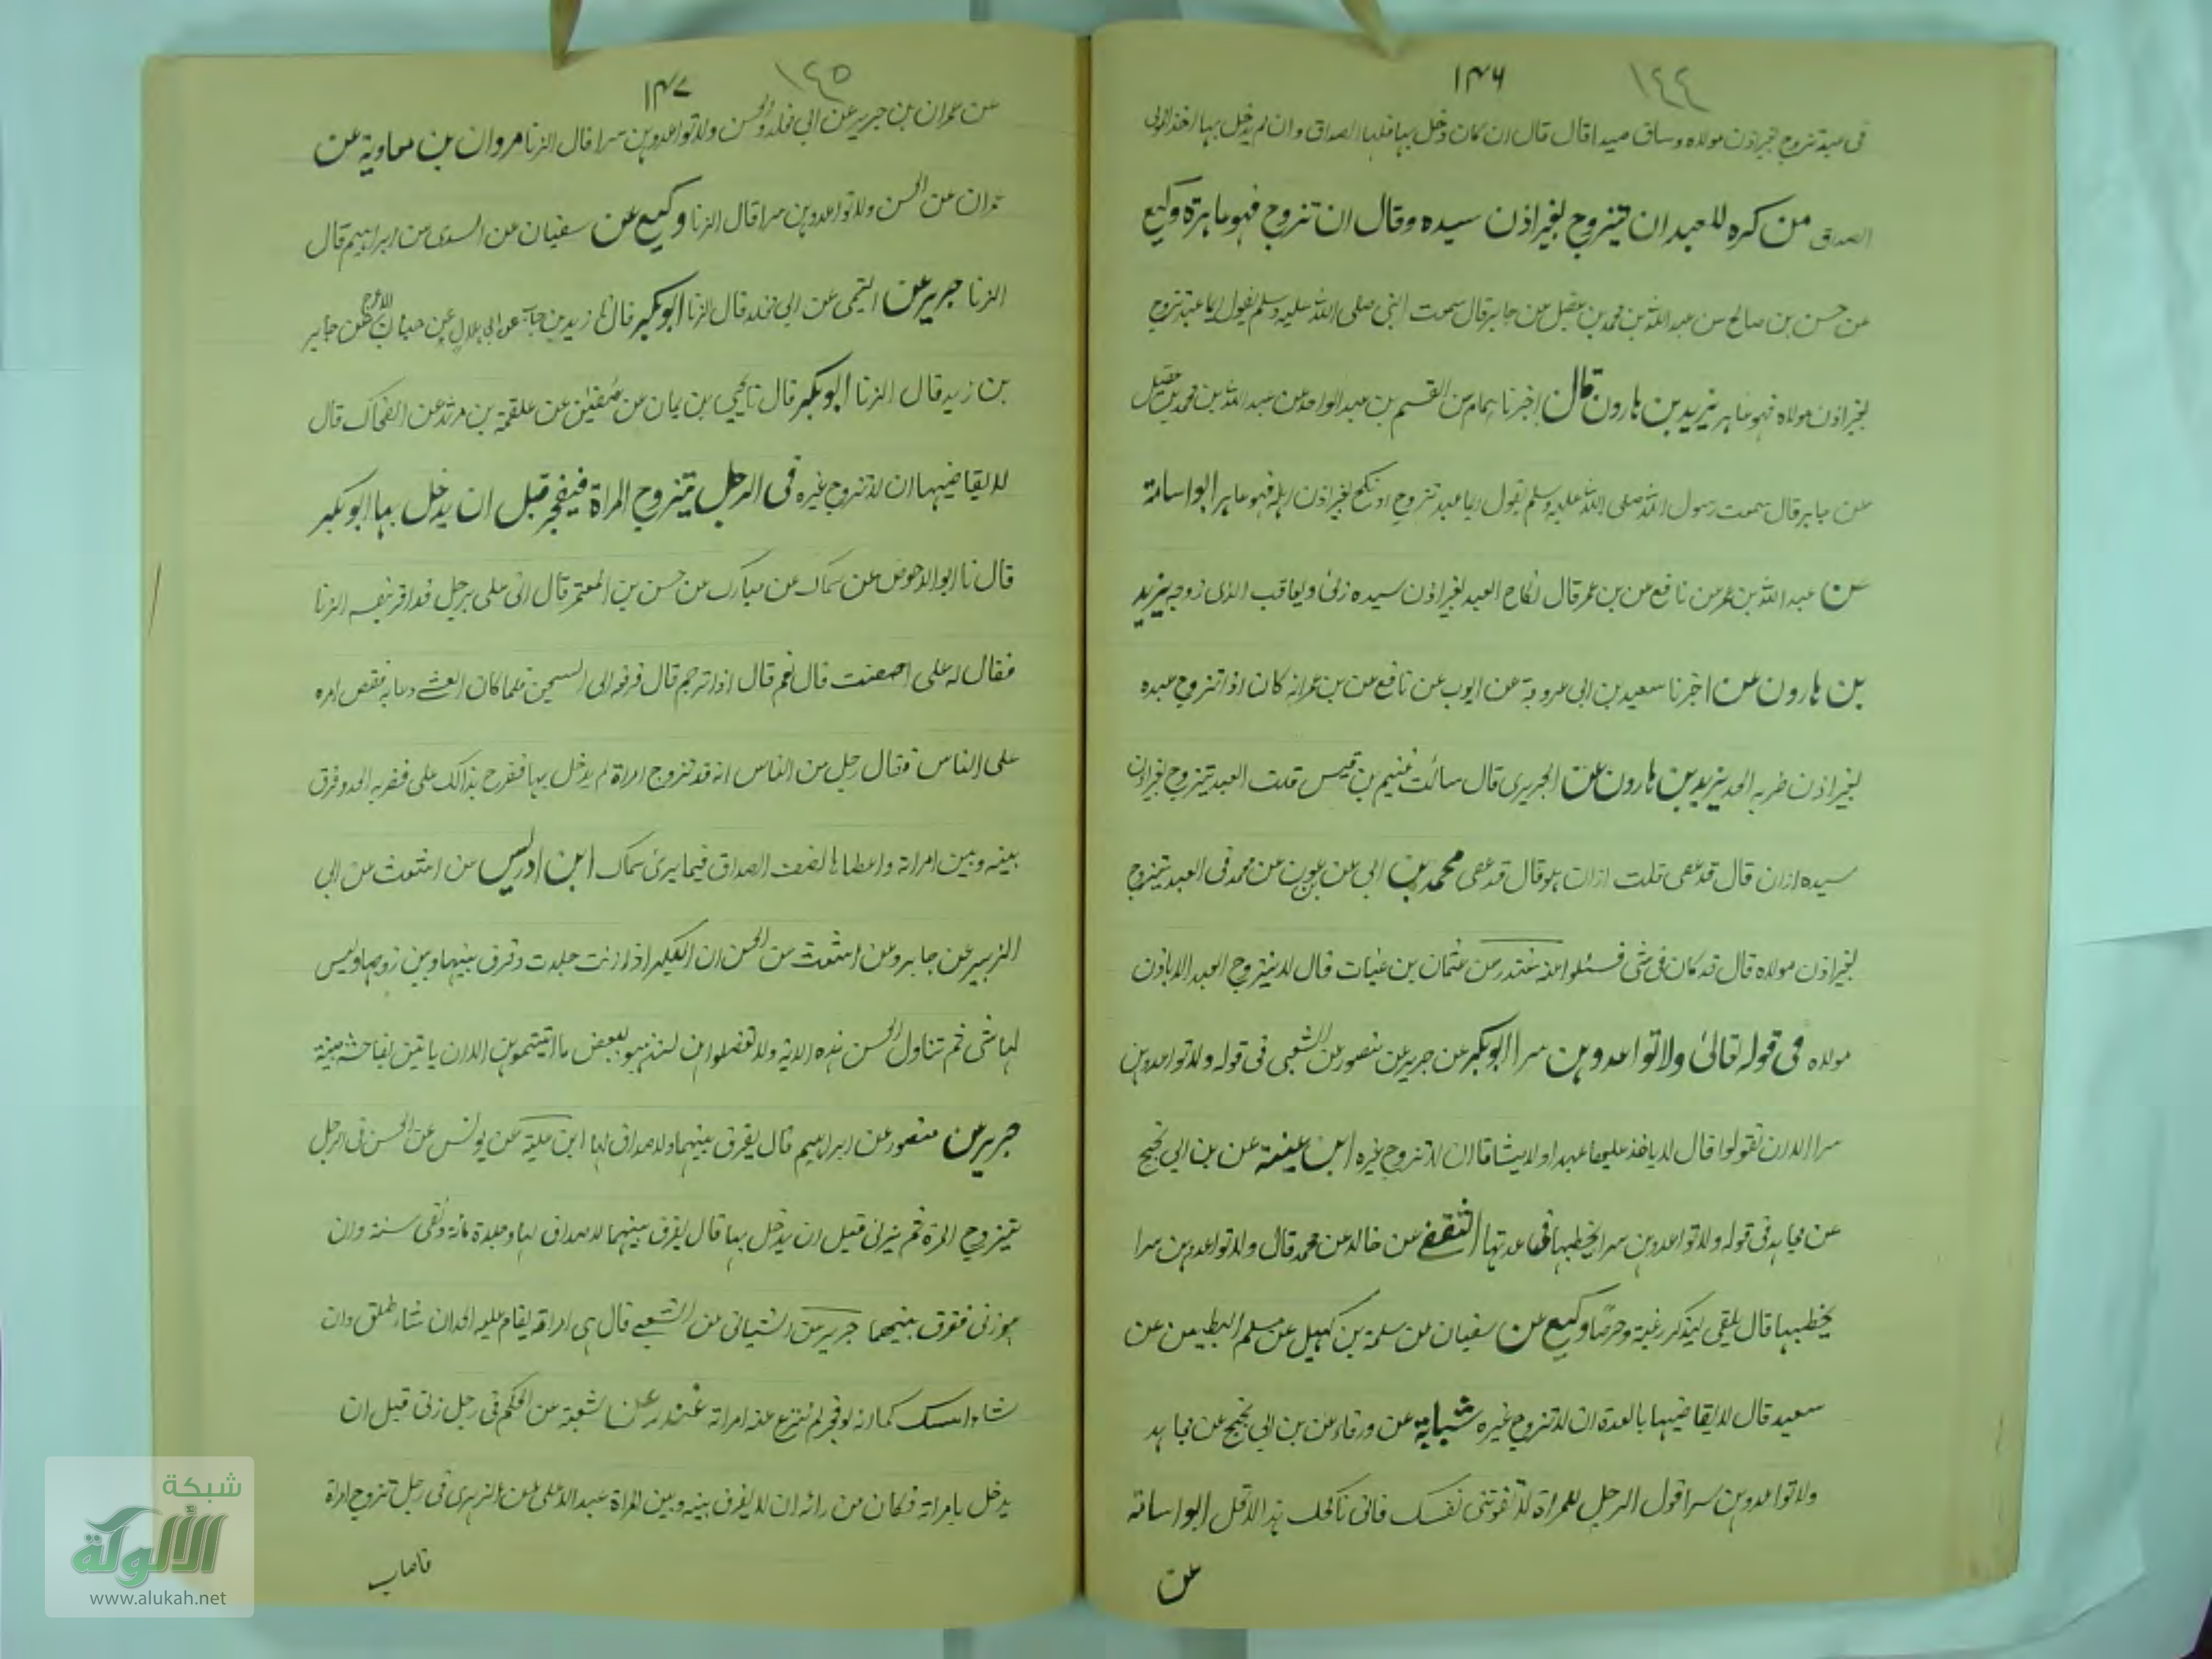 ١٤٤
١٣٦
فى عبد تزوج بغير اذن مولاه وساق صداقا قال ان كان دخل بها فلها الصداق وان لم يدخل بها اخذ المولى
الصداق من كره للعبد ان يتزوج بغير اذن سيده وقال ان تزوج فهو عاهرة وكيع
عن حسن بن صالح عن عبد الله بن محمد بن عقيل عن جابر قال سمعت النبى صلى الله عليه وسلم يقول ايما عبد تزوج
بغير اذن مولاه فهو عاهر يزيد بن هارون قال اخبرنا همام عن القسم بن عبد الواحد عن عبد الله بن محمد بن عقيل
عن جابر قال سمعت رسول الله صلى الله عليه وسلم يقول ايما عبد تزوج او نكح بغير اذن اهله فهو عاهر ابو اسامة
عن عبد الله بن عمر عن نافع عن بن عمر قال نكاح العبد بغير اذن سيده زنى ويعاقب الذى زوجه يزيد
بن هارون عن اخبرنا سعيد بن ابى عروبة عن ايوب عن نافع عن بن عمر انه كان اذا تزوج عبده
بغير اذن ضربه الحد يزيد بن هارون عن الجريرى قال سألت غنيم بن قيس قلت العبد يتزوج بغير اذن
سيده ازان قال قد عصى قلت ازان هو قال قد عصى محمد بن ابى عن بن عون عن محمد فى العبد يتزوج
بغير اذن مولاه قال قد كان فى شى فسئلوا عنه غندر عن عثمان بن غياث قال لا يتزوج العبد الا باذن
مولاه فى قوله تعالى ولا تواعدوهن سرا ابو بكر عن جرير عن منصور عن الشعبى فى قوله ولا تواعدوهن
سرا الا ان تقولوا قال لا ياخذ عليها عهدا ولا ميثاقا ان لا تزوج غيره ابن عيينة عن بن ابى نجيح
عن مجاهد فى قوله ولا تواعدوهن سرا يخطبها فى عدتها الثقفى عن خالد عن محمد قال ولا تواعدوهن سرا
يخطبها قال يلقى ليذكر رغبة وحرصا وكيع عن سفيان عن سلمة بن كهيل عن مسلم البطين عن
سعيد قال لا يقاضيها بالعدة ان لا تزوج غيره شبابة عن ورقاء عن بن ابى نجيح عن مجاهد
ولا تواعدوهن سرا قول الرجل للمراة لا تفوتنى نفسك فانى ناكحك هذا لا يحل ابو اسامة
عن
١٤٥
١٣٧
عن عمران بن جرير عن ابى مخلد والحسن ولا تواعدوهن سرا قال الزنا مروان بن معاوية عن
عمران عن الحسن ولا تواعدوهن سرا قال الزنا وكيع عن سفيان عن السدى عن ابراهيم قال
الزنا جرير عن التيمى عن ابى مخلد قال الزنا ابو بكر قال نا زيد بن حباب عن ابى هلال عن حيان الاعرج عن جابر
بن زيد قال الزنا ابو بكر قال نا يحيى بن يمان عن سفين عن علقمة بن مرثد عن الضحاك قال
لا يقاضيها ان لا تزوج غيره فى الرجل يتزوج المراة فيفجر قبل ان يدخل بها ابو بكر
قال نا ابو الاحوص عن سماك عن مبارك عن حسن بن المعتمر قال اتى على برجل قد اقر نفسه الزنا
فقال له على احصنت قال نعم قال اذا ترجم قال فرفعه الى السجن فلما كان العشى دعا به فقص امره
على الناس فقال رجل من الناس انه قد تزوج امراة لم يدخل بها ففرح بذالك على فضربه الحد وفرق
بينه وبين امراته واعطاها نصف الصداق فيما يرى سماك ابن ادريس عن اشعث عن ابى
الزبير عن جابر وعن اشعث عن الحسن ان البكر اذا زنت جلدت وفرق بينها وبين زوجها وليس
لها شى ثم تناول الحسن هذه الاية ولا تعضلوهن لتذهبوا ببعض ما اتيتموهن الا ان ياتين بفاحشة مبينة
جرير عن منصور عن ابراهيم قال يفرق بينهما ولا صداق لها ابن علية عن يونس عن الحسن فى الرجل
يتزوج المرة ثم يزنى قبل ان يدخل بها قال يفرق بينهما لا صداق لها وجلدة مأئة ونفى سنة وان
هو زنى ففرق بينهما جرير عن الشيبانى عن الشعبى قال هى امراته يقام عليه الحد ان شاء طلق وان
شاء امسك كما انه لو فجر لم تنزع عنه امراته غندر عن شعبة عن الحكم فى رجل زنى قبل ان
يدخل بامراته فكان من رائه ان لا يفرق بينه وبين المراة عبد الاعلى عن الزهرى فى رجل تزوج امراة
فاصاب
شبكة
الألوكة
www.alukah.net